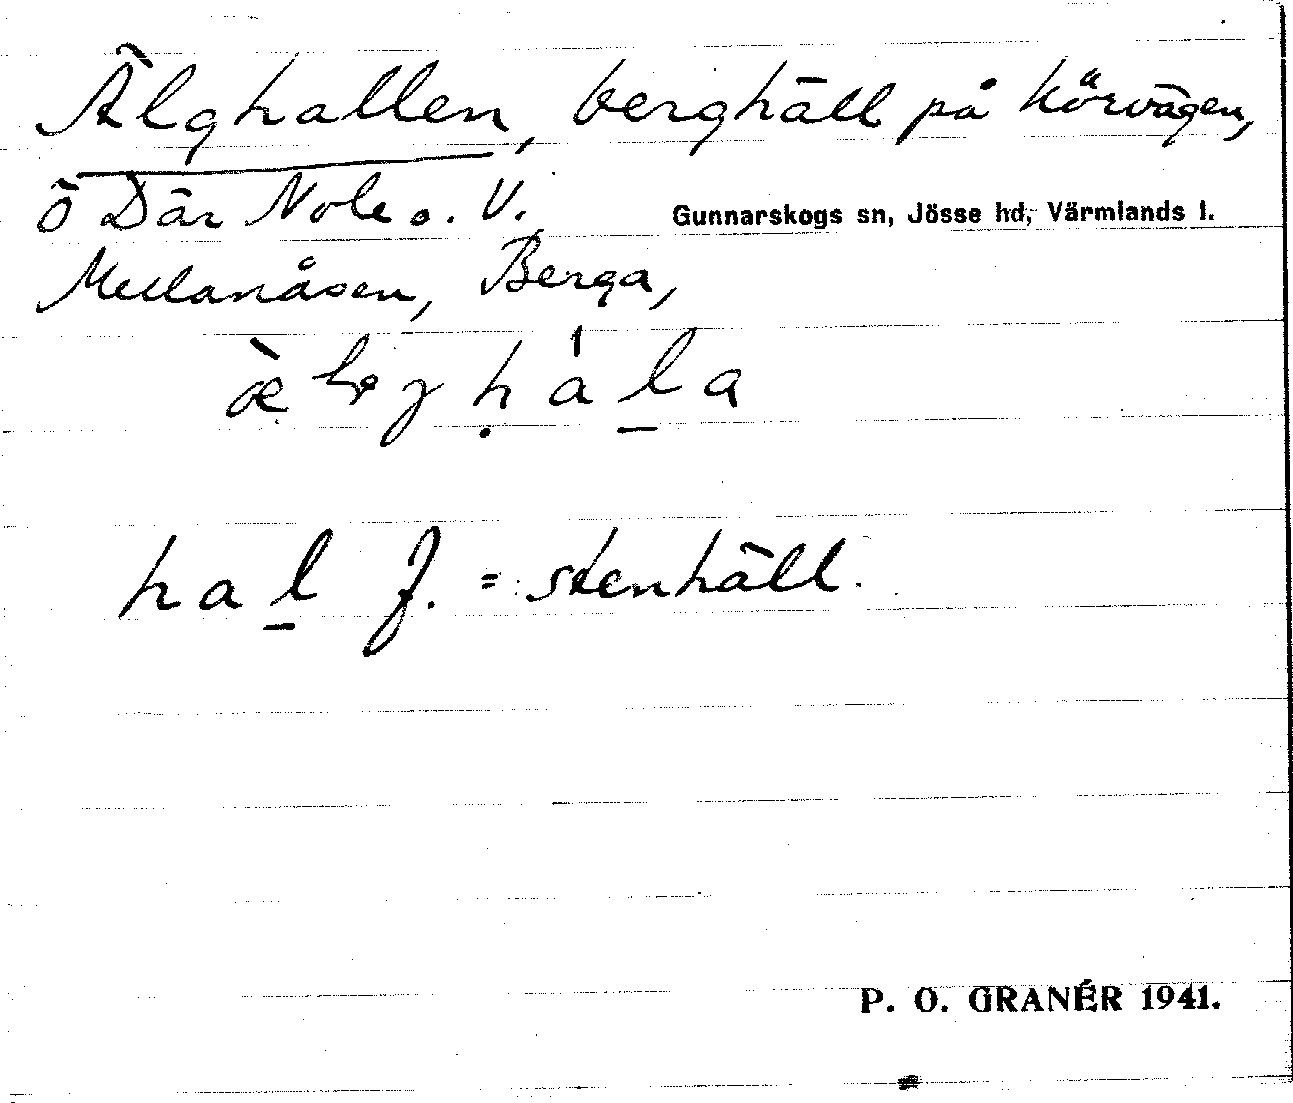 Älghallen, berghäll på körvägen,
ö Där Nole o. V.
Gunnarskogs sn, Jösse hd, Värmlands l.
Mellanåsen, Berga,
hal f. = stenhäll.
P. O. GRANÉR 1941.